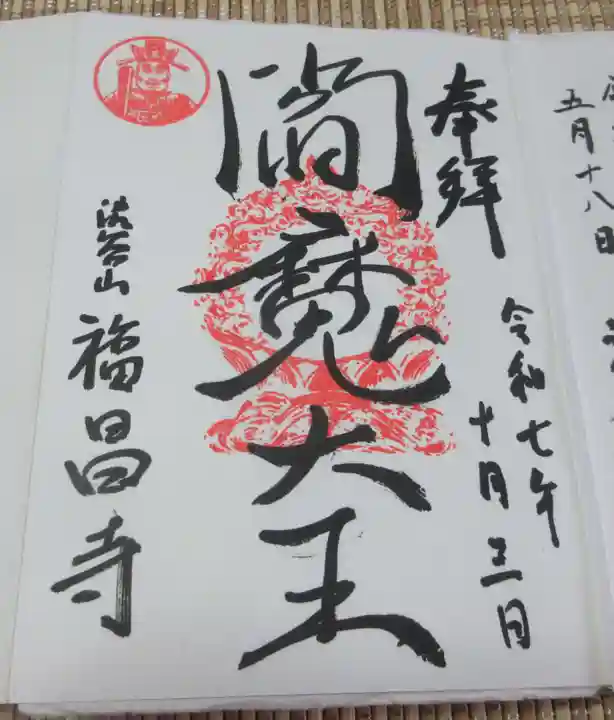 奉拝
令和七年
十月三日
閻魔大王
渋谷山
福昌寺
五月十八日